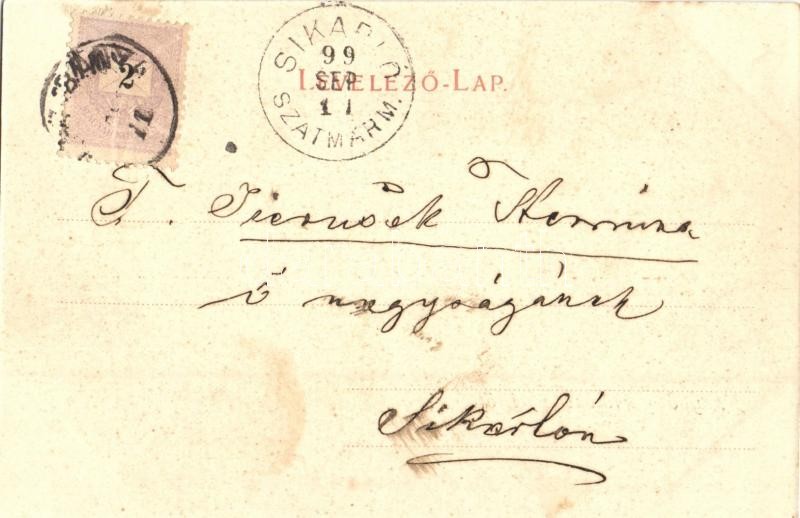 2
SIKARLÓ
99
SEP
11
SZATMÁR M.
LEVELEZŐ-LAP.
T. Hermina
ő nagyságának
Sikárlón